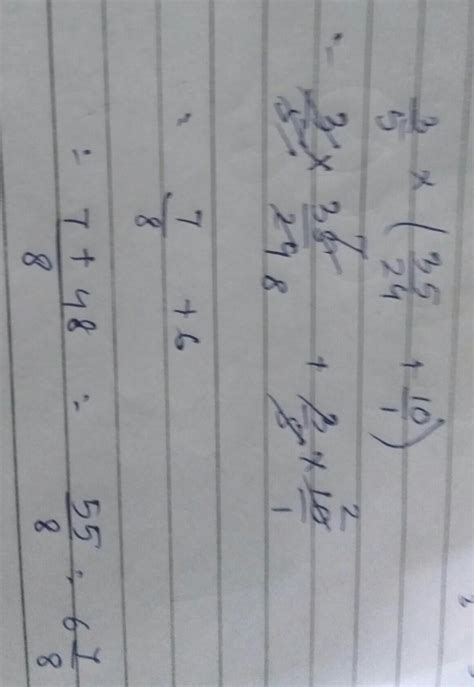 3/5 × (35/24 + 10/1)
= 3/5 × 35/24 7 8 + 3/5 × 10/1 2
= 7/8 + 6
= 7+48/8 = 55/8 = 6 7/8